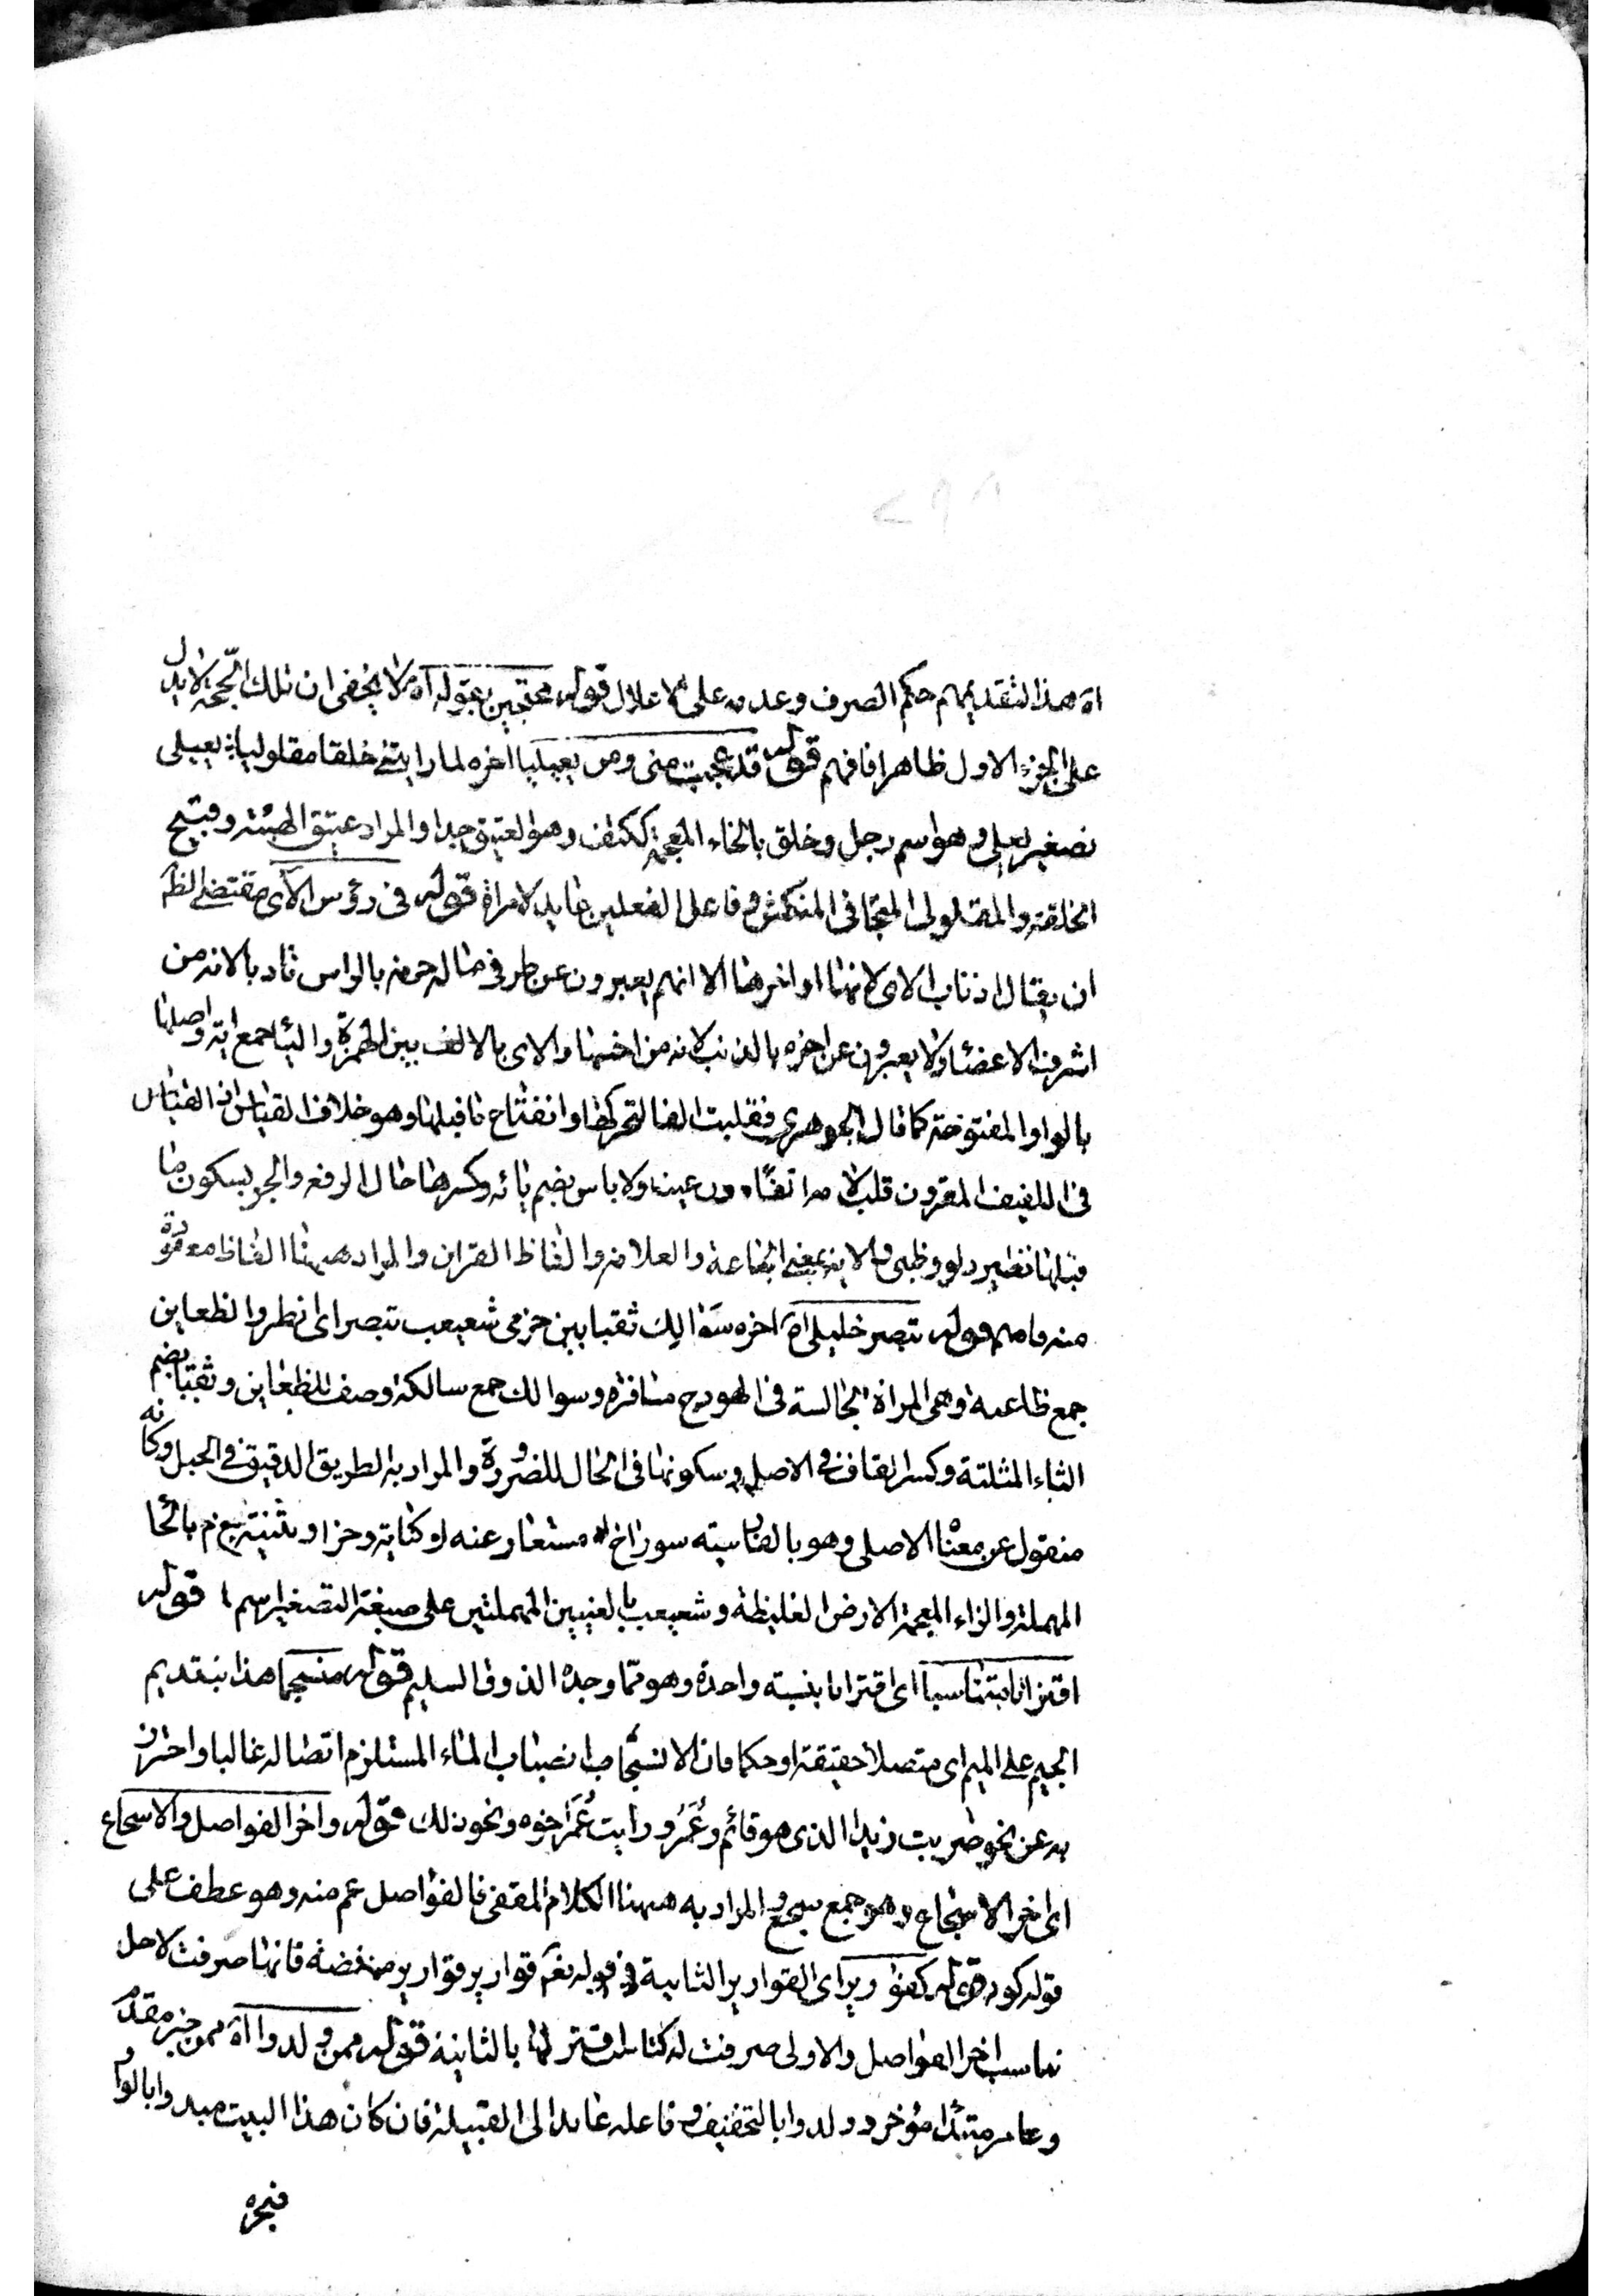 اه هذا لتقديمهم حكم الصرف وعدمه على الاعلال قوله محتجين بقوله اه لا يخفى ان تلك الحجة لا يدل
على الجزء الاول ظاهرا فافهم قوله قد عجبت منى ومن يعيليا اخره لما رايتنى خلقا مقلوليا يعيلى
تصغير يعلى وهو اسم رجل وخلق بالخاء المعجمة ككتف وهو العتيق جدا والمراد عتيق الهيئة وقبيح
الخلقة والمقلولى المتجافى المنكمش وفاعل الفعلين عايد لامراة قوله فى رؤس الآى مقتضى الظ
ان يقال اذناب الاى لانها اواخرها الا انهم يعبرون عن طرفى ماله حرمة بالراس تادبا لانه من
اشرف الاعضاء ولا يعبرون عن اخره بالذنب لانه من اخسها والاى بالالف بين الهمزة والياء جمع اية واصلها
بالواو المفتوحة كما قال الجوهرى فقلبت الفا لتحركها وانفتاح ما قبلها وهو خلاف القياس اذ القياس
فى اللفيف المقرون قلب لامه الفا دون عينه ولا باس بضم يائه وكسرها حال الرفع والجر بسكون ما
قبلها نظير دلو وظبى والاية بمعنى الجماعة والعلامة والفاظ القران والمراد ههنا الفاظ معدودة
منه فافهم قوله تبصر خليلى اه اخره سوالك ثقبا بين حزمى شعيعب تبصر اى انظر والظعاين
جمع ظاعنة وهى المراة الجالسة فى الهودج مسافرة وسوالك جمع سالكة وصف للظعاين وثقبا بضم
الثاء المثلثة وكسر القاف فى الاصل وسكونها فى الحال للضرورة والمراد به الطريق الدقيق فى الجبل وكانه
منقول عن معناه الاصلى وهو بالفارسيته سوراخ او مستعار عنه او كناية وحزما تثنية حزم بالحاء
المهملة والزاء المعجمة الارض الغليظة وشعيعب بالعينين المهملتين على صيغة التصغير اسم ماء قوله
اقترانا متناسبا اى اقترانا بنسبة واحدة وهو مما وجده الذوق السليم قوله منسجما هذا بتقديم
الجيم على الميم اى متصلا حقيقة او حكما فان الانسجام انصباب الماء المستلزم اتصاله غالبا واحترز
به عن نحو ضربت زيدا الذى هو قائم وعمر ورايت عمر اخوه ونحو ذلك قوله واخر الفواصل والاسجاع
اى اخر الاسجاع وهو جمع سجع والمراد به ههنا الكلام المقفى فالفواصل اعم منه وهو عطف على
قوله كون قوله كقوارير اى القوارير الثانية فى قوله تعم قوارير قوارير من فضة فانها صرفت لاجل
تناسب اخر الفواصل والاولى صرفت له كتابة لاقترانها بالثانية قوله وممن ولدوا اه ممن خبر مقدم
وعامر مبتدا مؤخر وولدوا بالتخفيف وفاعله عايد الى القبيلة فان كان هذا البيت مبدوا بالواو
فبحره